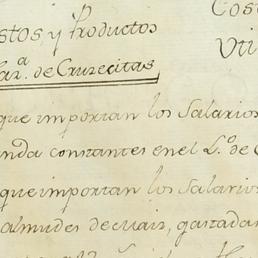 stos y Productos
Cost
ar.ª de Cruzecitas
Uti
que importan los Salarios
nda constantes en el L.º de C
que importan los Salarios
almudes de maiz, gastada